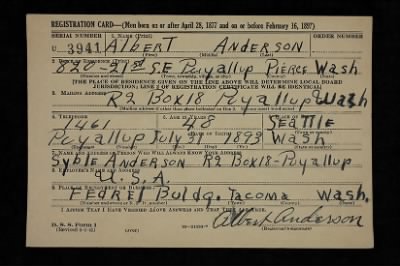 REGISTRATION CARD—(Men born on or after April 28, 1877 and on or before February 16, 1897)
SERIAL NUMBER 1. NAME (Print) ORDER NUMBER
U 3941 ALBERT ANDERSON
(First) (Middle) (Last)
2. PLACE OF RESIDENCE (Print)
820-21st SE Puyallup Pierce Wash
[THE PLACE OF RESIDENCE GIVEN ON THE LINE ABOVE WILL DETERMINE LOCAL BOARD
JURISDICTION; LINE 2 OF REGISTRATION CERTIFICATE WILL BE IDENTICAL]
3. MAILING ADDRESS
R2 Box18 Puyallup Wash
4. TELEPHONE 5. AGE IN YEARS 6. PLACE OF BIRTH
1461 48 SEATTLE
DATE OF BIRTH
Puyallup July 31 1893 Wash
7. NAME AND ADDRESS OF PERSON WHO WILL ALWAYS KNOW YOUR ADDRESS
Syble Anderson R2 Box18-Puyallup
8. EMPLOYER'S NAME AND ADDRESS
U.S.A.
9. PLACE OF EMPLOYMENT OR BUSINESS
Fedrel Buldg. Tacoma Wash.
I AFFIRM THAT I HAVE VERIFIED ABOVE ANSWERS AND THAT THEY ARE TRUE.
D. S. S. Form 1
Albert Anderson